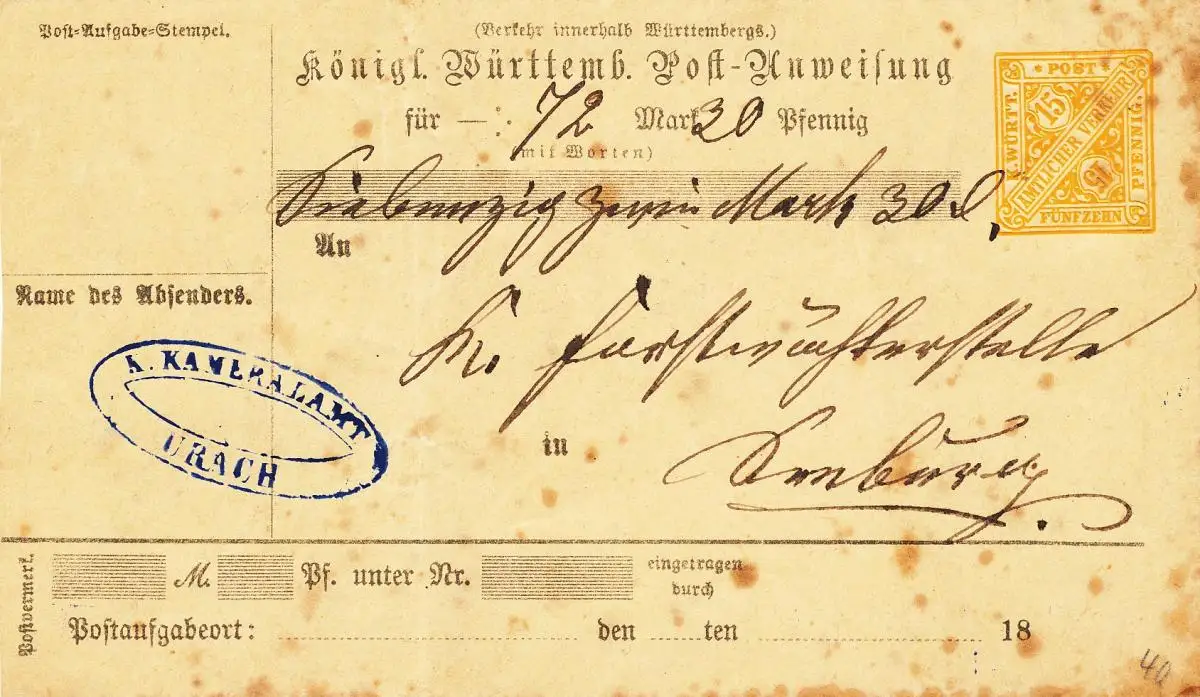 Post-Aufgabe-Stempel.
(Verkehr innerhalb Württembergs.)
Königl. Württemb. Post-Anweisung
für — : 72 Mark 30 Pfennig
(mit Worten)
Siebenzig zwei Mark 30 d.
An
K. Forstwächterstelle
in
Seeburg.
* POST *
K. WÜRTT.
15
AMTLICHER VERKEHR
15
PFENNIG.
FÜNFZEHN
Name des Absenders.
K. KAMERALAMT
URACH
Postvermerk.
M. Pf. unter Nr. eingetragen
durch
Postaufgabeort: den ten 18
40